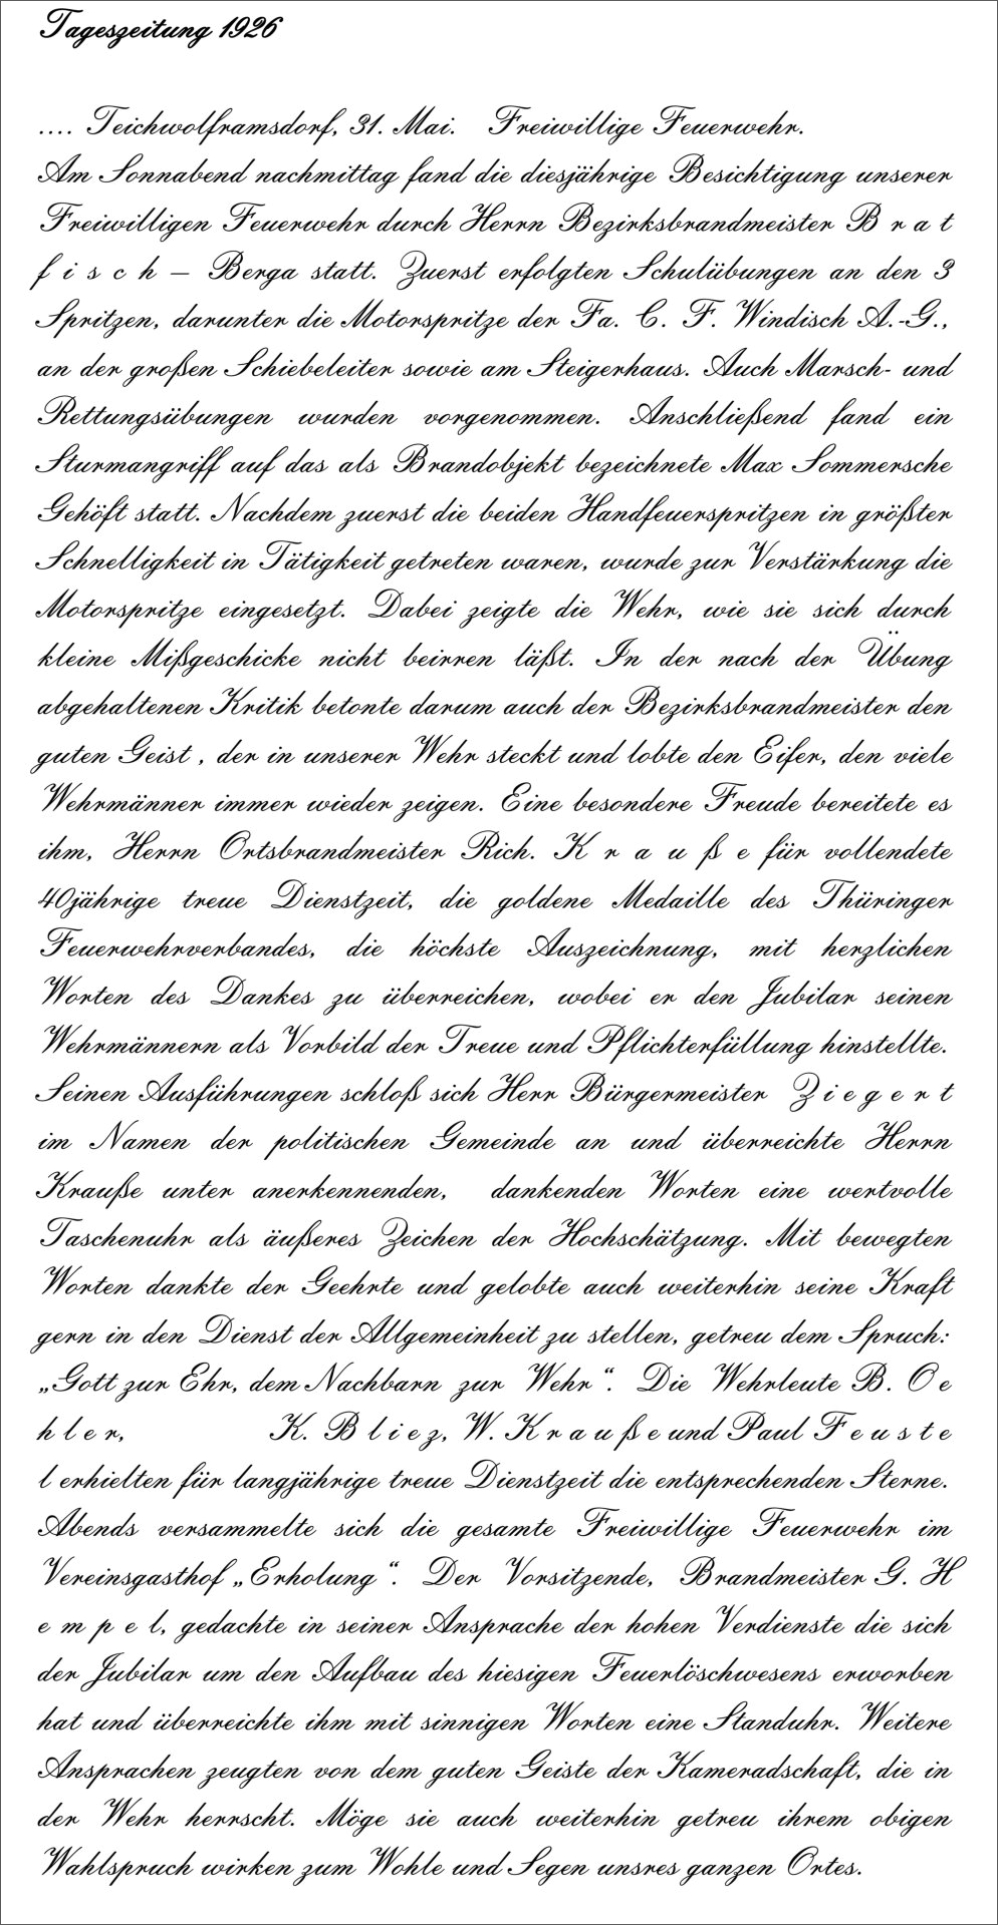 Tageszeitung 1926
.... Teichwolframsdorf, 31. Mai. Freiwillige Feuerwehr.
Am Sonnabend nachmittag fand die diesjährige Besichtigung unserer
Freiwilligen Feuerwehr durch Herrn Bezirksbrandmeister B r a t
f i s c h – Berga statt. Zuerst erfolgten Schulübungen an den 3
Spritzen, darunter die Motorspritze der Fa. C. F. Windisch A.-G.,
an der großen Schiebeleiter sowie am Steigerhaus. Auch Marsch- und
Rettungsübungen wurden vorgenommen. Anschließend fand ein
Sturmangriff auf das als Brandobjekt bezeichnete Max Sommersche
Gehöft statt. Nachdem zuerst die beiden Handfeuerspritzen in größter
Schnelligkeit in Tätigkeit getreten waren, wurde zur Verstärkung die
Motorspritze eingesetzt. Dabei zeigte die Wehr, wie sie sich durch
kleine Mißgeschicke nicht beirren läßt. In der nach der Übung
abgehaltenen Kritik betonte darum auch der Bezirksbrandmeister den
guten Geist , der in unserer Wehr steckt und lobte den Eifer, den viele
Wehrmänner immer wieder zeigen. Eine besondere Freude bereitete es
ihm, Herrn Ortsbrandmeister Rich. K r a u ß e für vollendete
40jährige treue Dienstzeit, die goldene Medaille des Thüringer
Feuerwehrverbandes, die höchste Auszeichnung, mit herzlichen
Worten des Dankes zu überreichen, wobei er den Jubilar seinen
Wehrmännern als Vorbild der Treue und Pflichterfüllung hinstellte.
Seinen Ausführungen schloß sich Herr Bürgermeister Z i e g e r t
im Namen der politischen Gemeinde an und überreichte Herrn
Krauße unter anerkennenden, dankenden Worten eine wertvolle
Taschenuhr als äußeres Zeichen der Hochschätzung. Mit bewegten
Worten dankte der Geehrte und gelobte auch weiterhin seine Kraft
gern in den Dienst der Allgemeinheit zu stellen, getreu dem Spruch:
„Gott zur Ehr, dem Nachbarn zur Wehr“. Die Wehrleute B. O e
h l e r, K. B l i e z, W. K r a u ß e und Paul F e u s t e
l erhielten für langjährige treue Dienstzeit die entsprechenden Sterne.
Abends versammelte sich die gesamte Freiwillige Feuerwehr im
Vereinsgasthof „Erholung“. Der Vorsitzende, Brandmeister G. H
e m p e l, gedachte in seiner Ansprache der hohen Verdienste die sich
der Jubilar um den Aufbau des hiesigen Feuerlöschwesens erworben
hat und überreichte ihm mit sinnigen Worten eine Standuhr. Weitere
Ansprachen zeugten von dem guten Geiste der Kameradschaft, die in
der Wehr herrscht. Möge sie auch weiterhin getreu ihrem obigen
Wahlspruch wirken zum Wohle und Segen unsres ganzen Ortes.